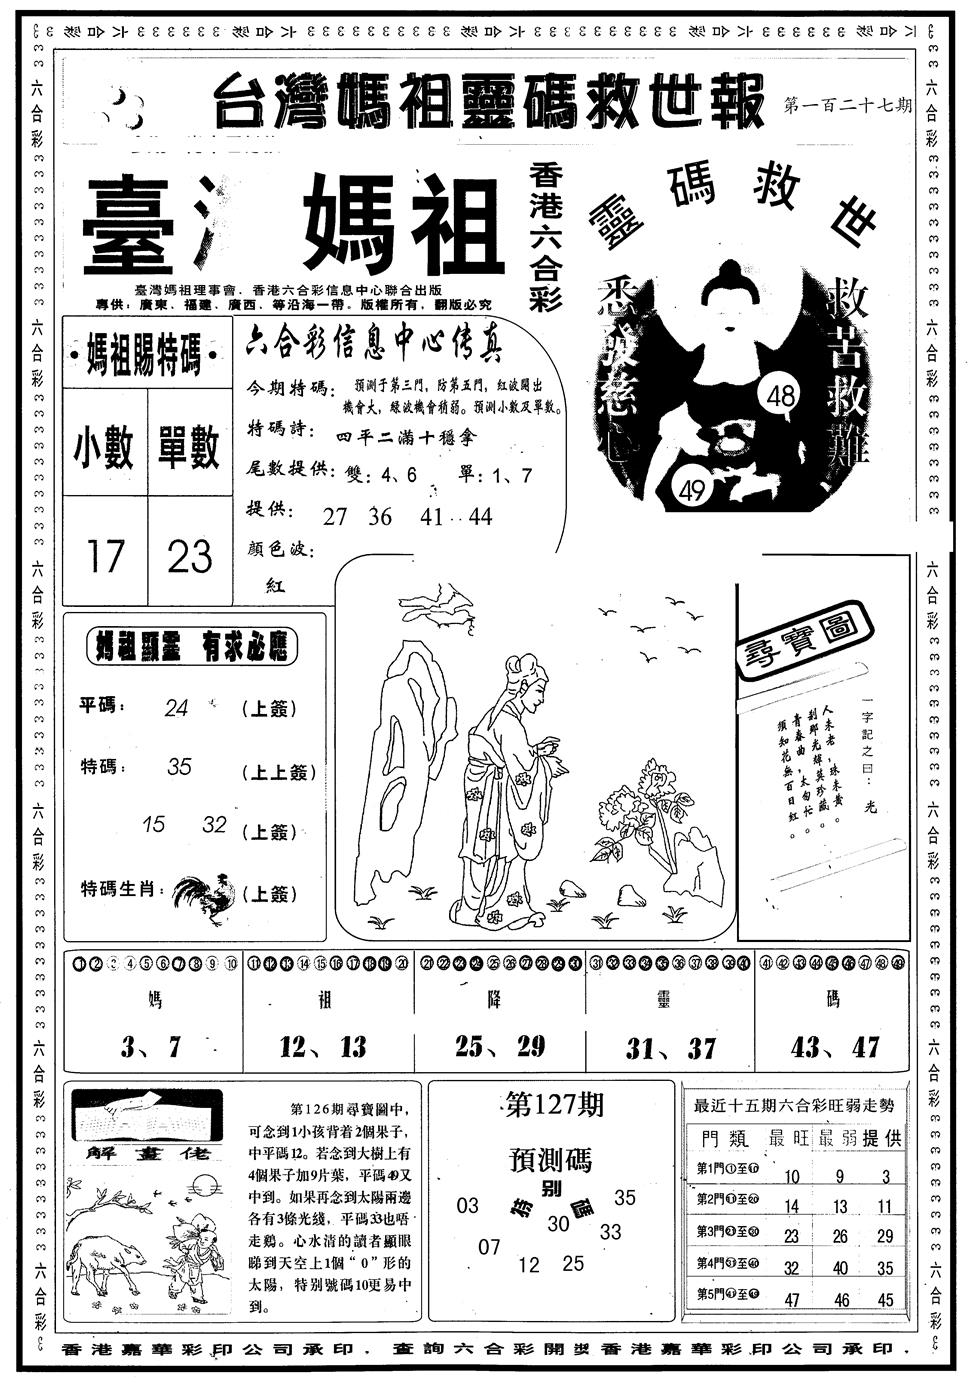 台灣媽祖靈碼救世報
第一百二十七期
臺灣 媽祖
香港六合彩
靈碼救世
悉發慈心
救苦救難
48
49
臺灣媽祖理事會．香港六合彩信息中心聯合出版
專供：廣東、福建、廣西、等沿海一帶。版權所有，翻版必究
·媽祖賜特碼·
小數 單數
17 23
六合彩信息中心传真
今期特碼：預測于第三門，防第五門，紅波開出
機會大，綠波機會稍弱。預測小數及單數。
特碼詩：四平二滿十穩拿
尾數提供：雙：4、6 單：1、7
提供：27 36 41 44
顏色波：
紅
媽祖顯靈 有求必應
平碼：24 (上簽)
特碼：35 (上上簽)
15 32 (上簽)
特碼生肖：(上簽)
尋寶圖
一字記之曰：光
人未老，珠未黃，
剎那光輝莫珍藏。
青春曲，太匆忙，
須知花無百日紅。
媽 祖 降 靈 碼
3、7 12、13 25、29 31、37 43、47
解畫佬
第126期尋寶圖中，
可念到1小孩背着2個果子，
中平碼12。若念到大樹上有
4個果子加9片葉，平碼49又
中到。如果再念到太陽兩邊
各有3條光綫，平碼33也唔
走鷄。心水清的讀者顯眼
睇到天空上1個“0”形的
太陽，特别號碼10更易中
到。
第127期
預測碼
特别圖
03 35
30 33
07 12 25
最近十五期六合彩旺弱走勢
門類 最旺 最弱 提供
第1門①至⑩ 10 9 3
第2門⑪至⑳ 14 13 11
第3門㉑至㉚ 23 26 29
第4門㉛至㊵ 32 40 35
第5門㊶至㊾ 47 46 45
香港嘉華彩印公司承印．查詢六合彩開獎香港嘉華彩印公司承印．